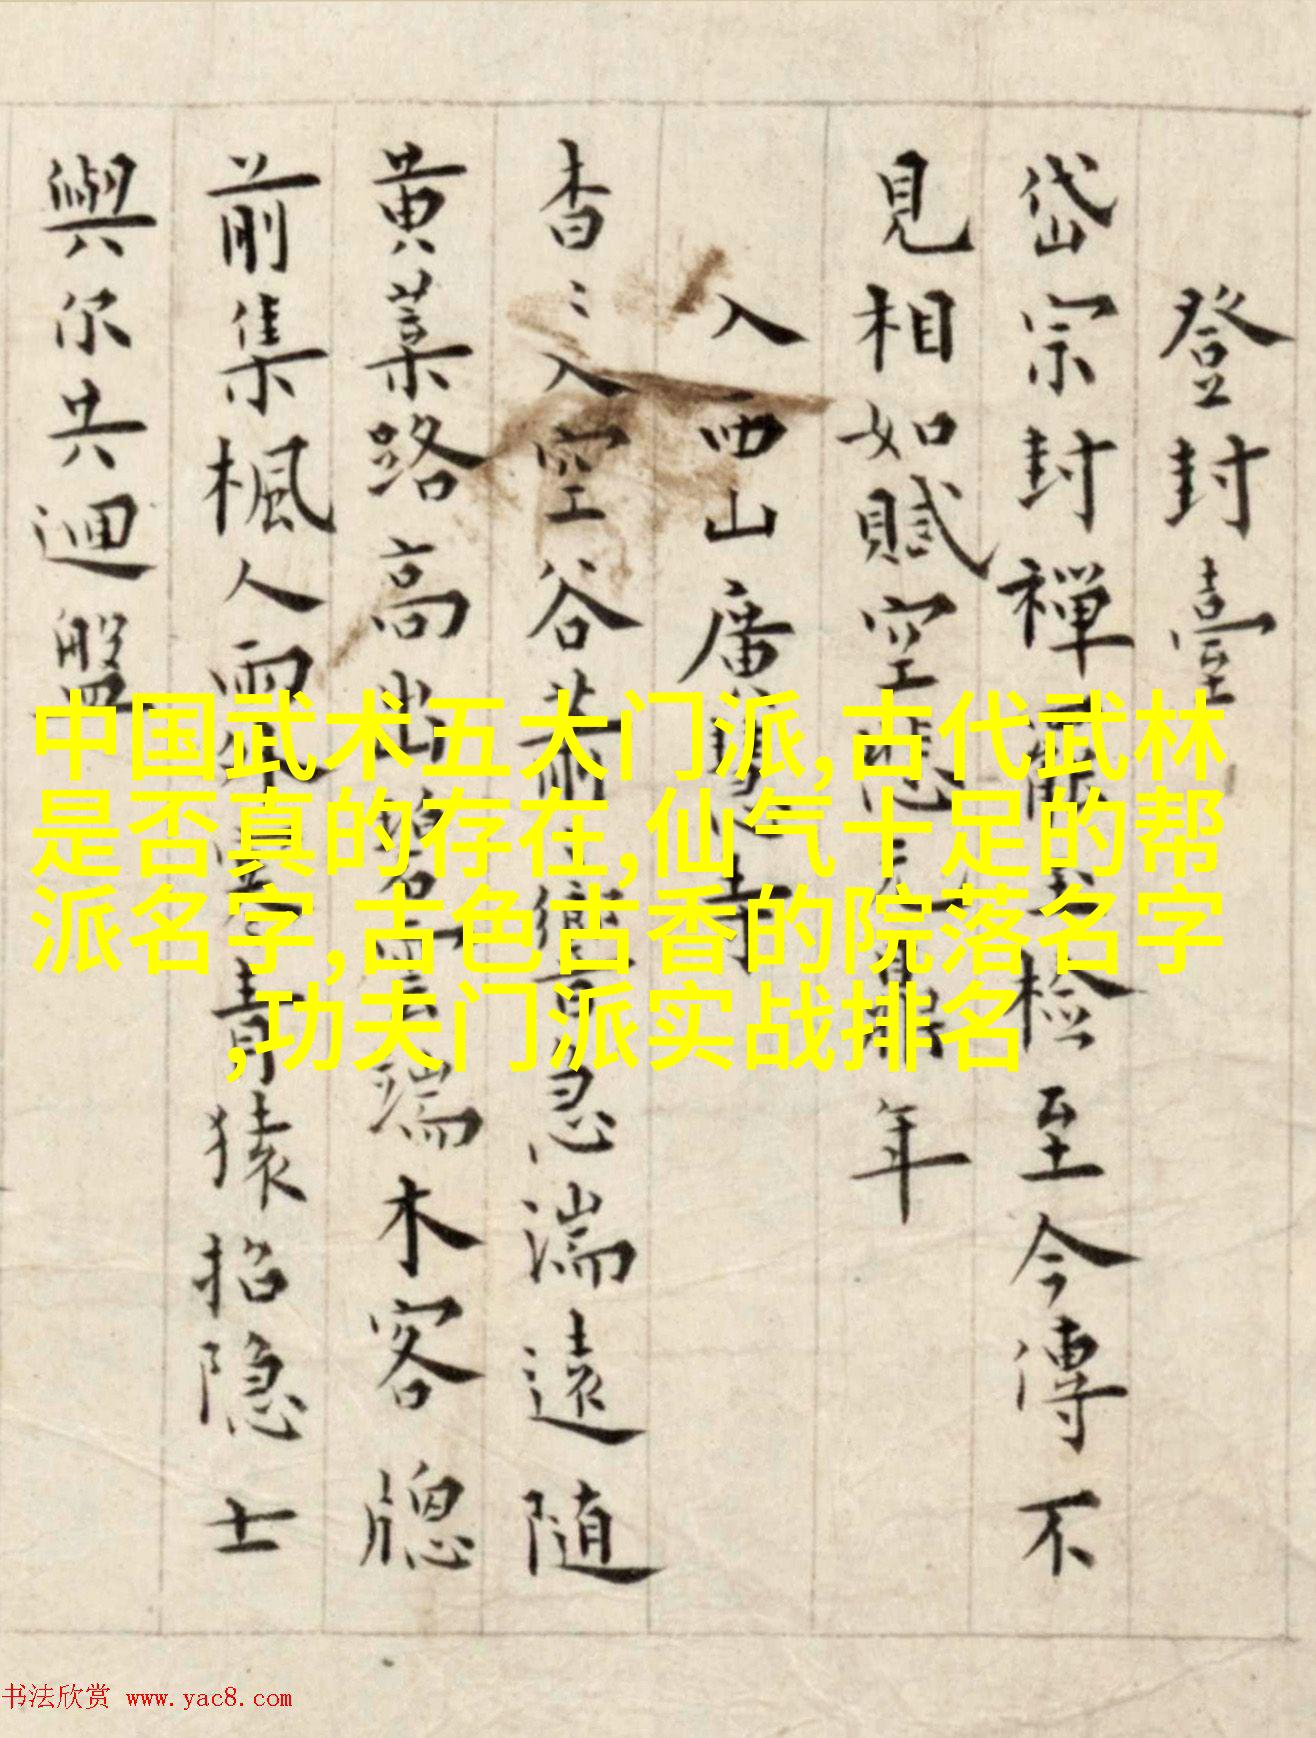 登封臺
岱宗封禪玉检至今傳不
見相如賦空悲元鼎年
入西山廣慧寺
杳〻入空谷蕭〻響急湍遠隨
黄葉路高出碧雲端木客牕
前集楓人雨青猿招隐士
與尔共迴盤
中国武术五大门派,古代武林
是否真的存在,仙气十足的帮
派名字,古色古香的院落名字
,功夫门派实战排名
书法欣赏 www.yac8.com